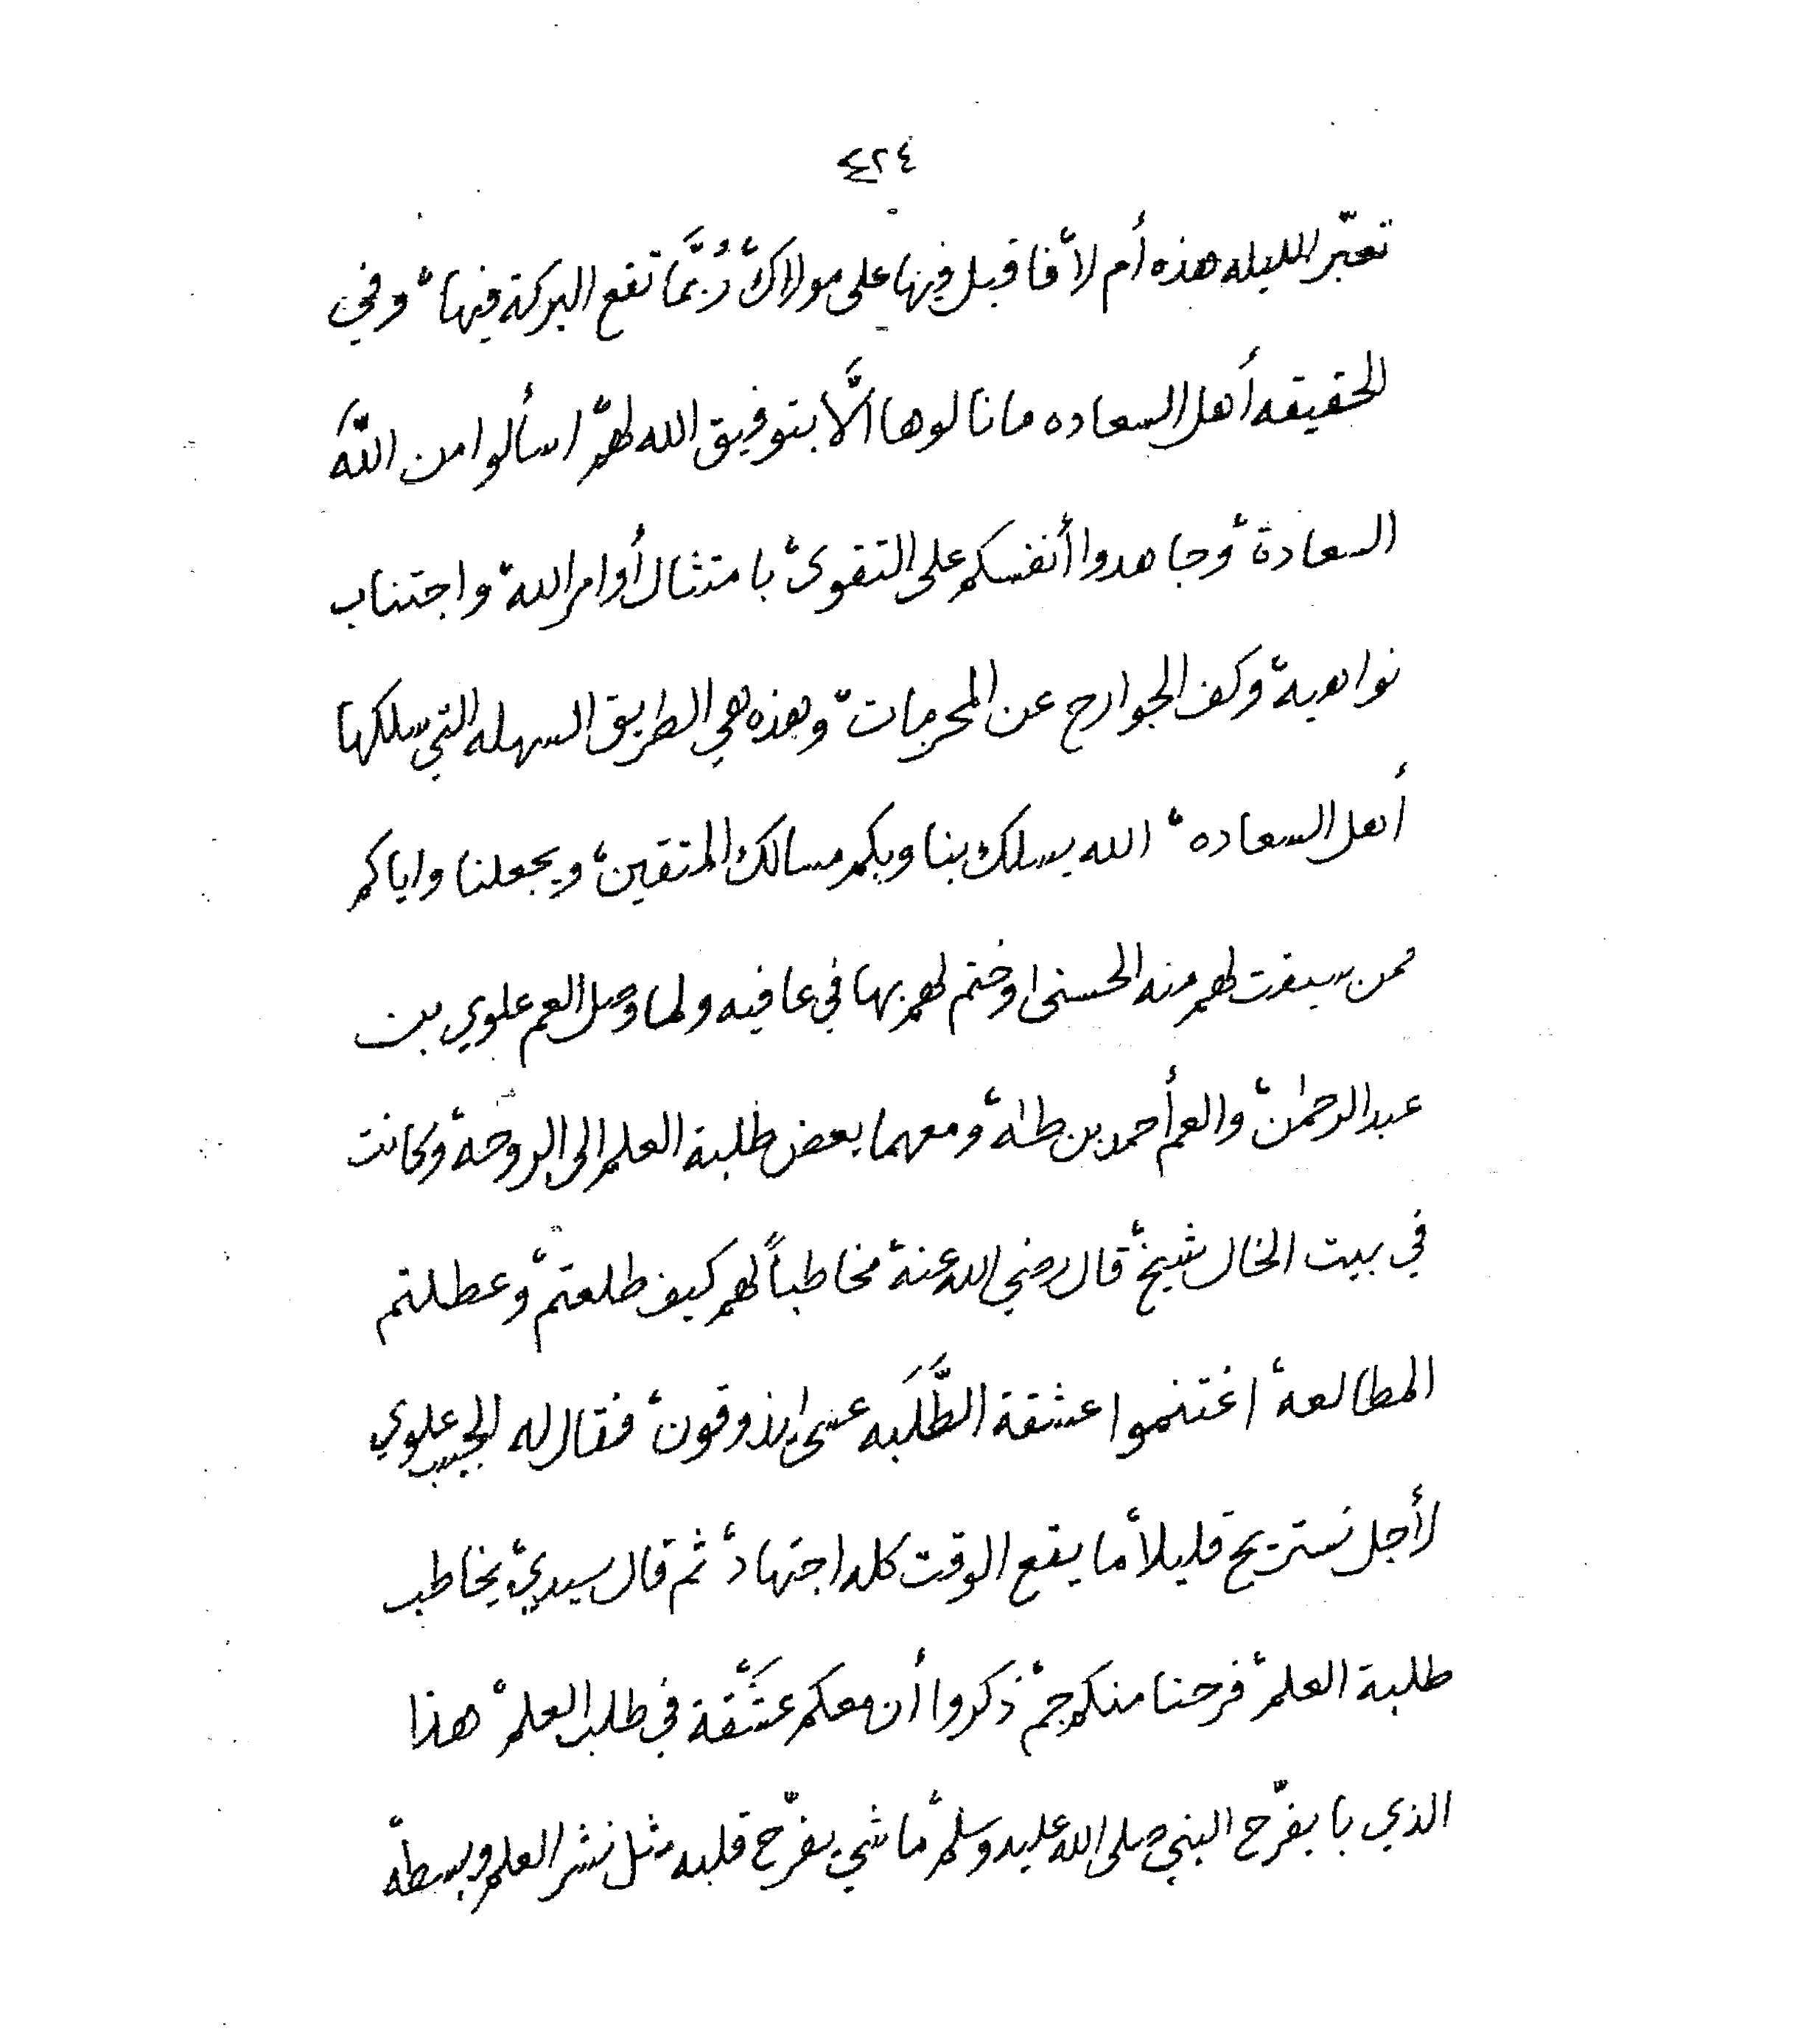 ٤٢٤
تعبّر الليله هذه أم لا، فاقبل فيها على مولاك، رُبَّما تقع البركة فيها، وفي
الحقيقه أهل السعاده ما نالوها الَّا بتوفيق الله لهم، اسألوا من اللَّه
السعادة، وجاهدوا أنفسكم على التقوى، بامتثال أوامر الله، واجتناب
نواهيه، وكف الجوارح عن المحرمات، وهذه هي الطريق السهله التي سلكها
أهل السعاده، الله يسلك بنا وبكم مسالك المتقين، ويجعلنا واياكم
ممن سبقت لهم منه الحسنى، وختم لهم بها في عافيه ولما وصل العم علوي بن
عبدالرحمٰن، والعم أحمد بن طٰه، ومعهما بعض طلبة العلم الى الروحة، وكانت
في بيت الخال شيخ، قال رضي الله عنه، مخاطباً لهم كيف طلعتم، وعطلتم
المطالعه، اغتنموا عشقة الطَّلَبه عسى يذوقون، فقال له الحبيب علوي
لأجل نستريح قليلا، ما يقع الوقت كله اجتهاد، ثم قال سيدي، يخاطب
طلبة العلم، فرحنا منكم جم، ذكروا أن معكم عَشْقة في طلب العلم، هذا
الذي با يفرّح النبي صلى الله عليه وسلم، ما شي يفرّح قلبه مثل نشر العلم وبسطه،